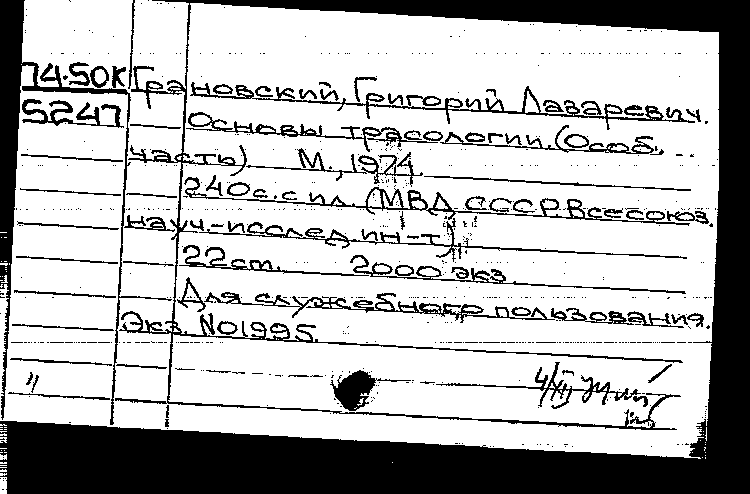 74-50К Грановский, Григорий Лазаревич.
5247 Основы трасологии. (Особ.
часть) М., 1974.
240 с. с ил. (МВД СССР. Всесоюз.
науч.-исслед. ин-т)
22 см. 2000 экз.
Для служебного пользования.
Экз. №01995.
4/XII